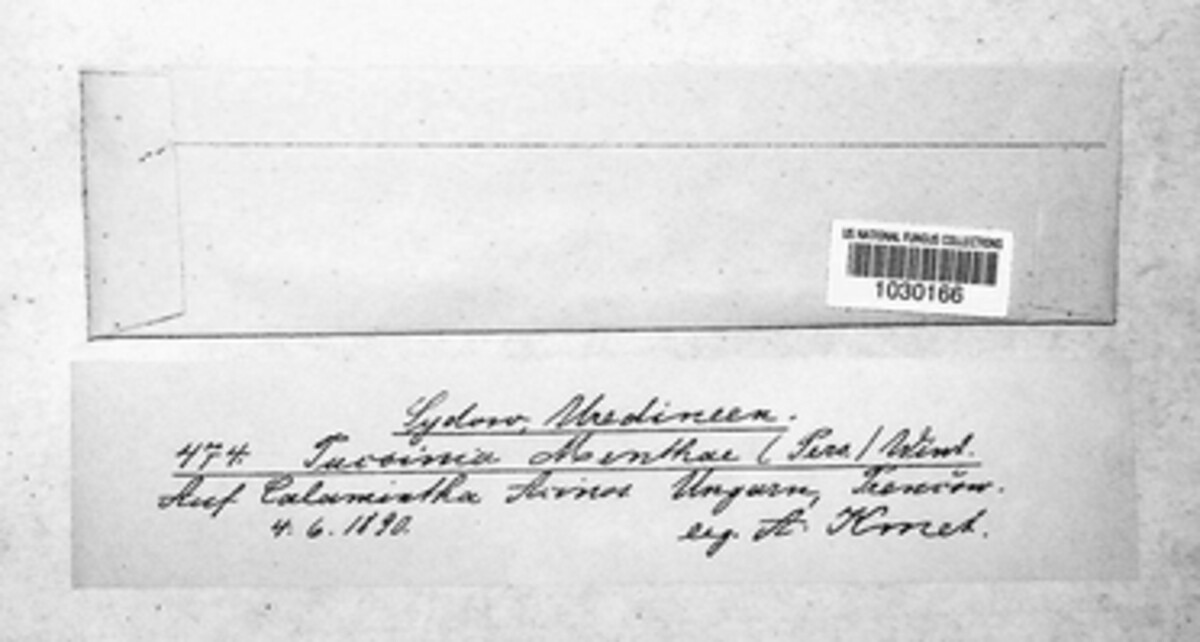 US NATIONAL FUNGUS COLLECTIONS
1030166
Sydow, Uredineen.
474. Puccinia Menthae (Pers.) Wint.
Auf Calamintha Acinos Ungarn, Trencsin.
4. 6. 1890. leg. A. Kmet.